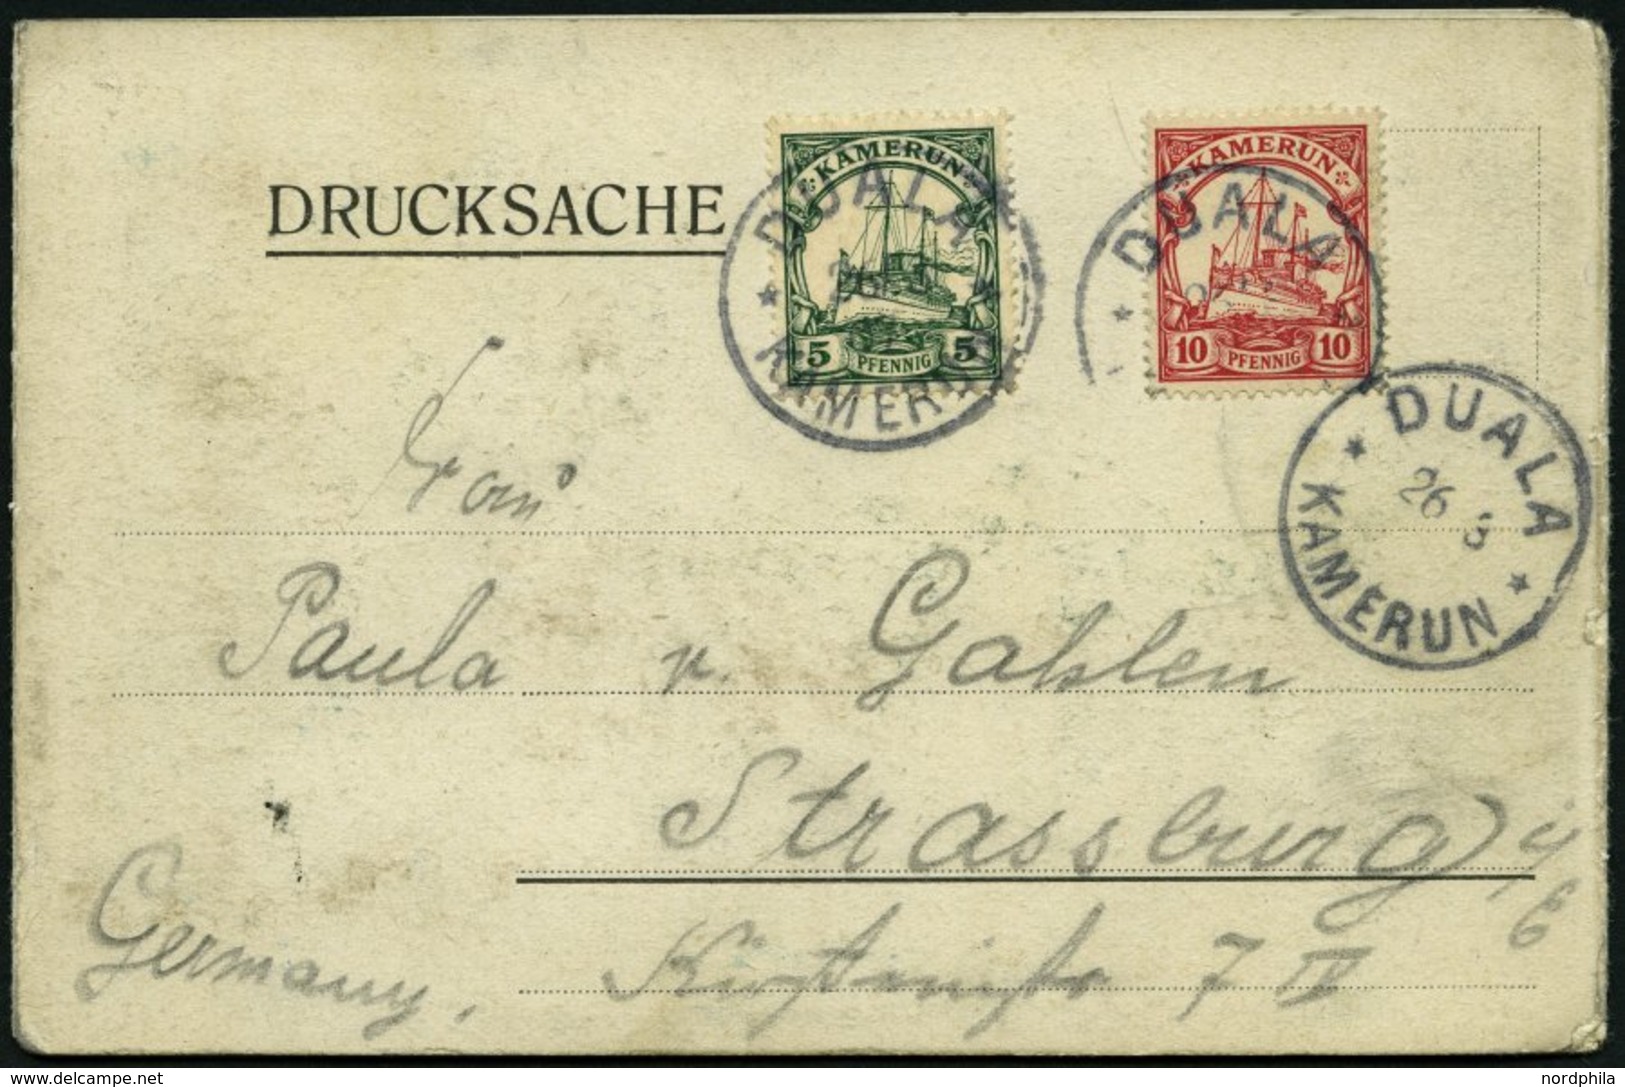 DRUCKSACHE
KAMERUN
5 PFENNIG 5
KAMERUN
10 PFENNIG 10
DUALA
KAMERUN
DUALA
DUALA
26 3
KAMERUN
Paula v. Gahlen
Strassburg
Germany,
7 IV
delcampe.net
nordphila